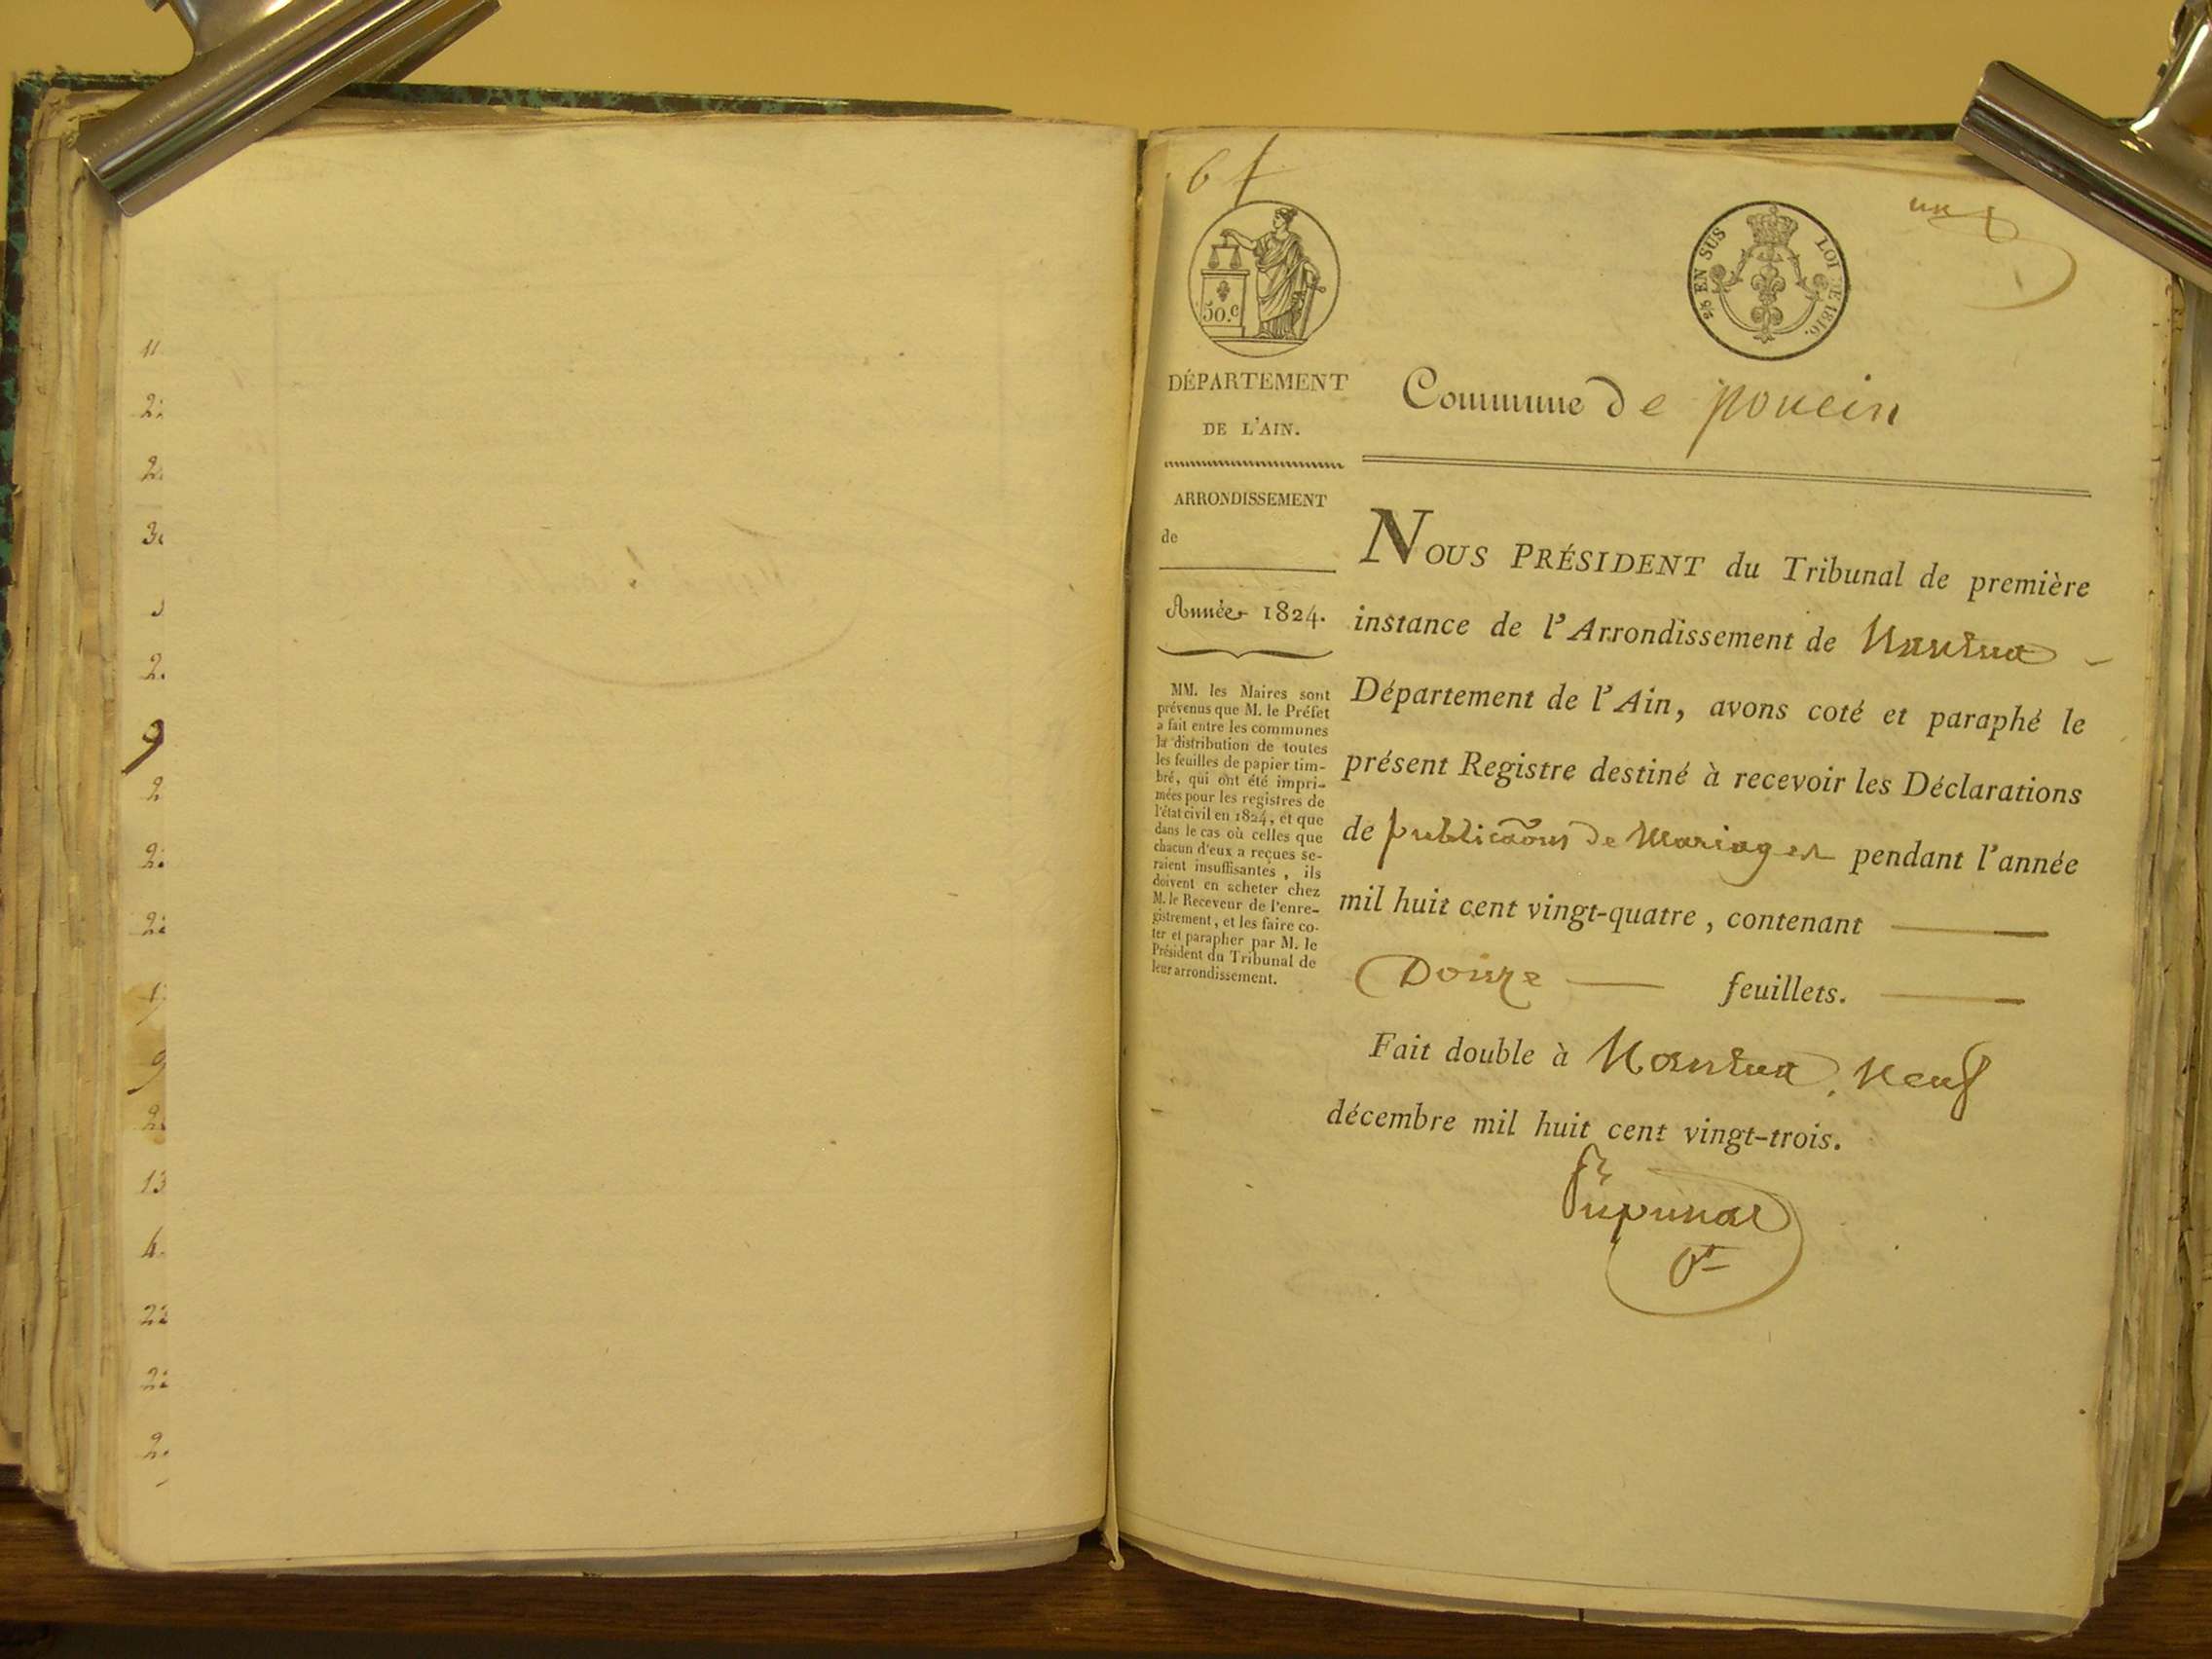 11
22
2
9
2
2.
22
9
13
4.
22
22
2.
6
un
50.c
EN SUS LOI DE 1816.
DÉPARTEMENT
DE L'AIN.
Commune de poncin
ARRONDISSEMENT
de
Année 1824.
MM. les Maires sont
prévenus que M. le Préfet
a fait entre les communes
la distribution de toutes
les feuilles de papier tim-
bré, qui ont été impri-
mées pour les registres de
l'état civil en 1824, et que
dans le cas où celles que
chacun d'eux a reçues se-
raient insuffisantes, ils
doivent en acheter chez
M. le Receveur de l'enre-
gistrement, et les faire co-
ter et parapher par M. le
Président du Tribunal de
leur arrondissement.
NOUS PRÉSIDENT du Tribunal de première
instance de l'Arrondissement de Nantua
Département de l'Ain, avons coté et paraphé le
présent Registre destiné à recevoir les Déclarations
de publicaons de Mariages pendant l'année
mil huit cent vingt-quatre, contenant
Douze feuillets.
Fait double à Nantua, Neuf
décembre mil huit cent vingt-trois.